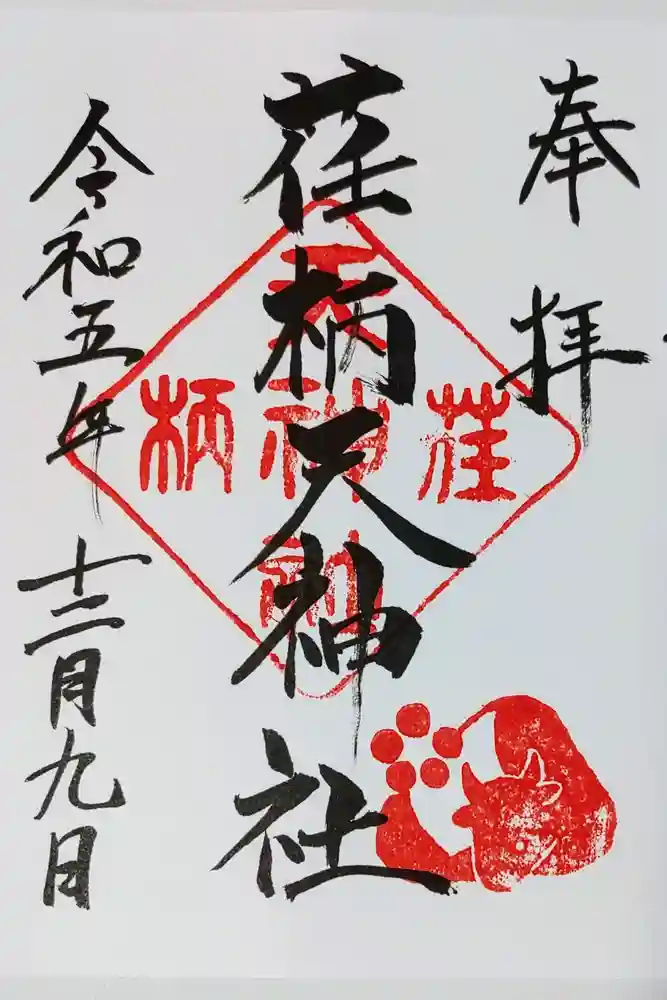 奉拝
荏柄天神社
令和五年十二月九日
荏柄
天神